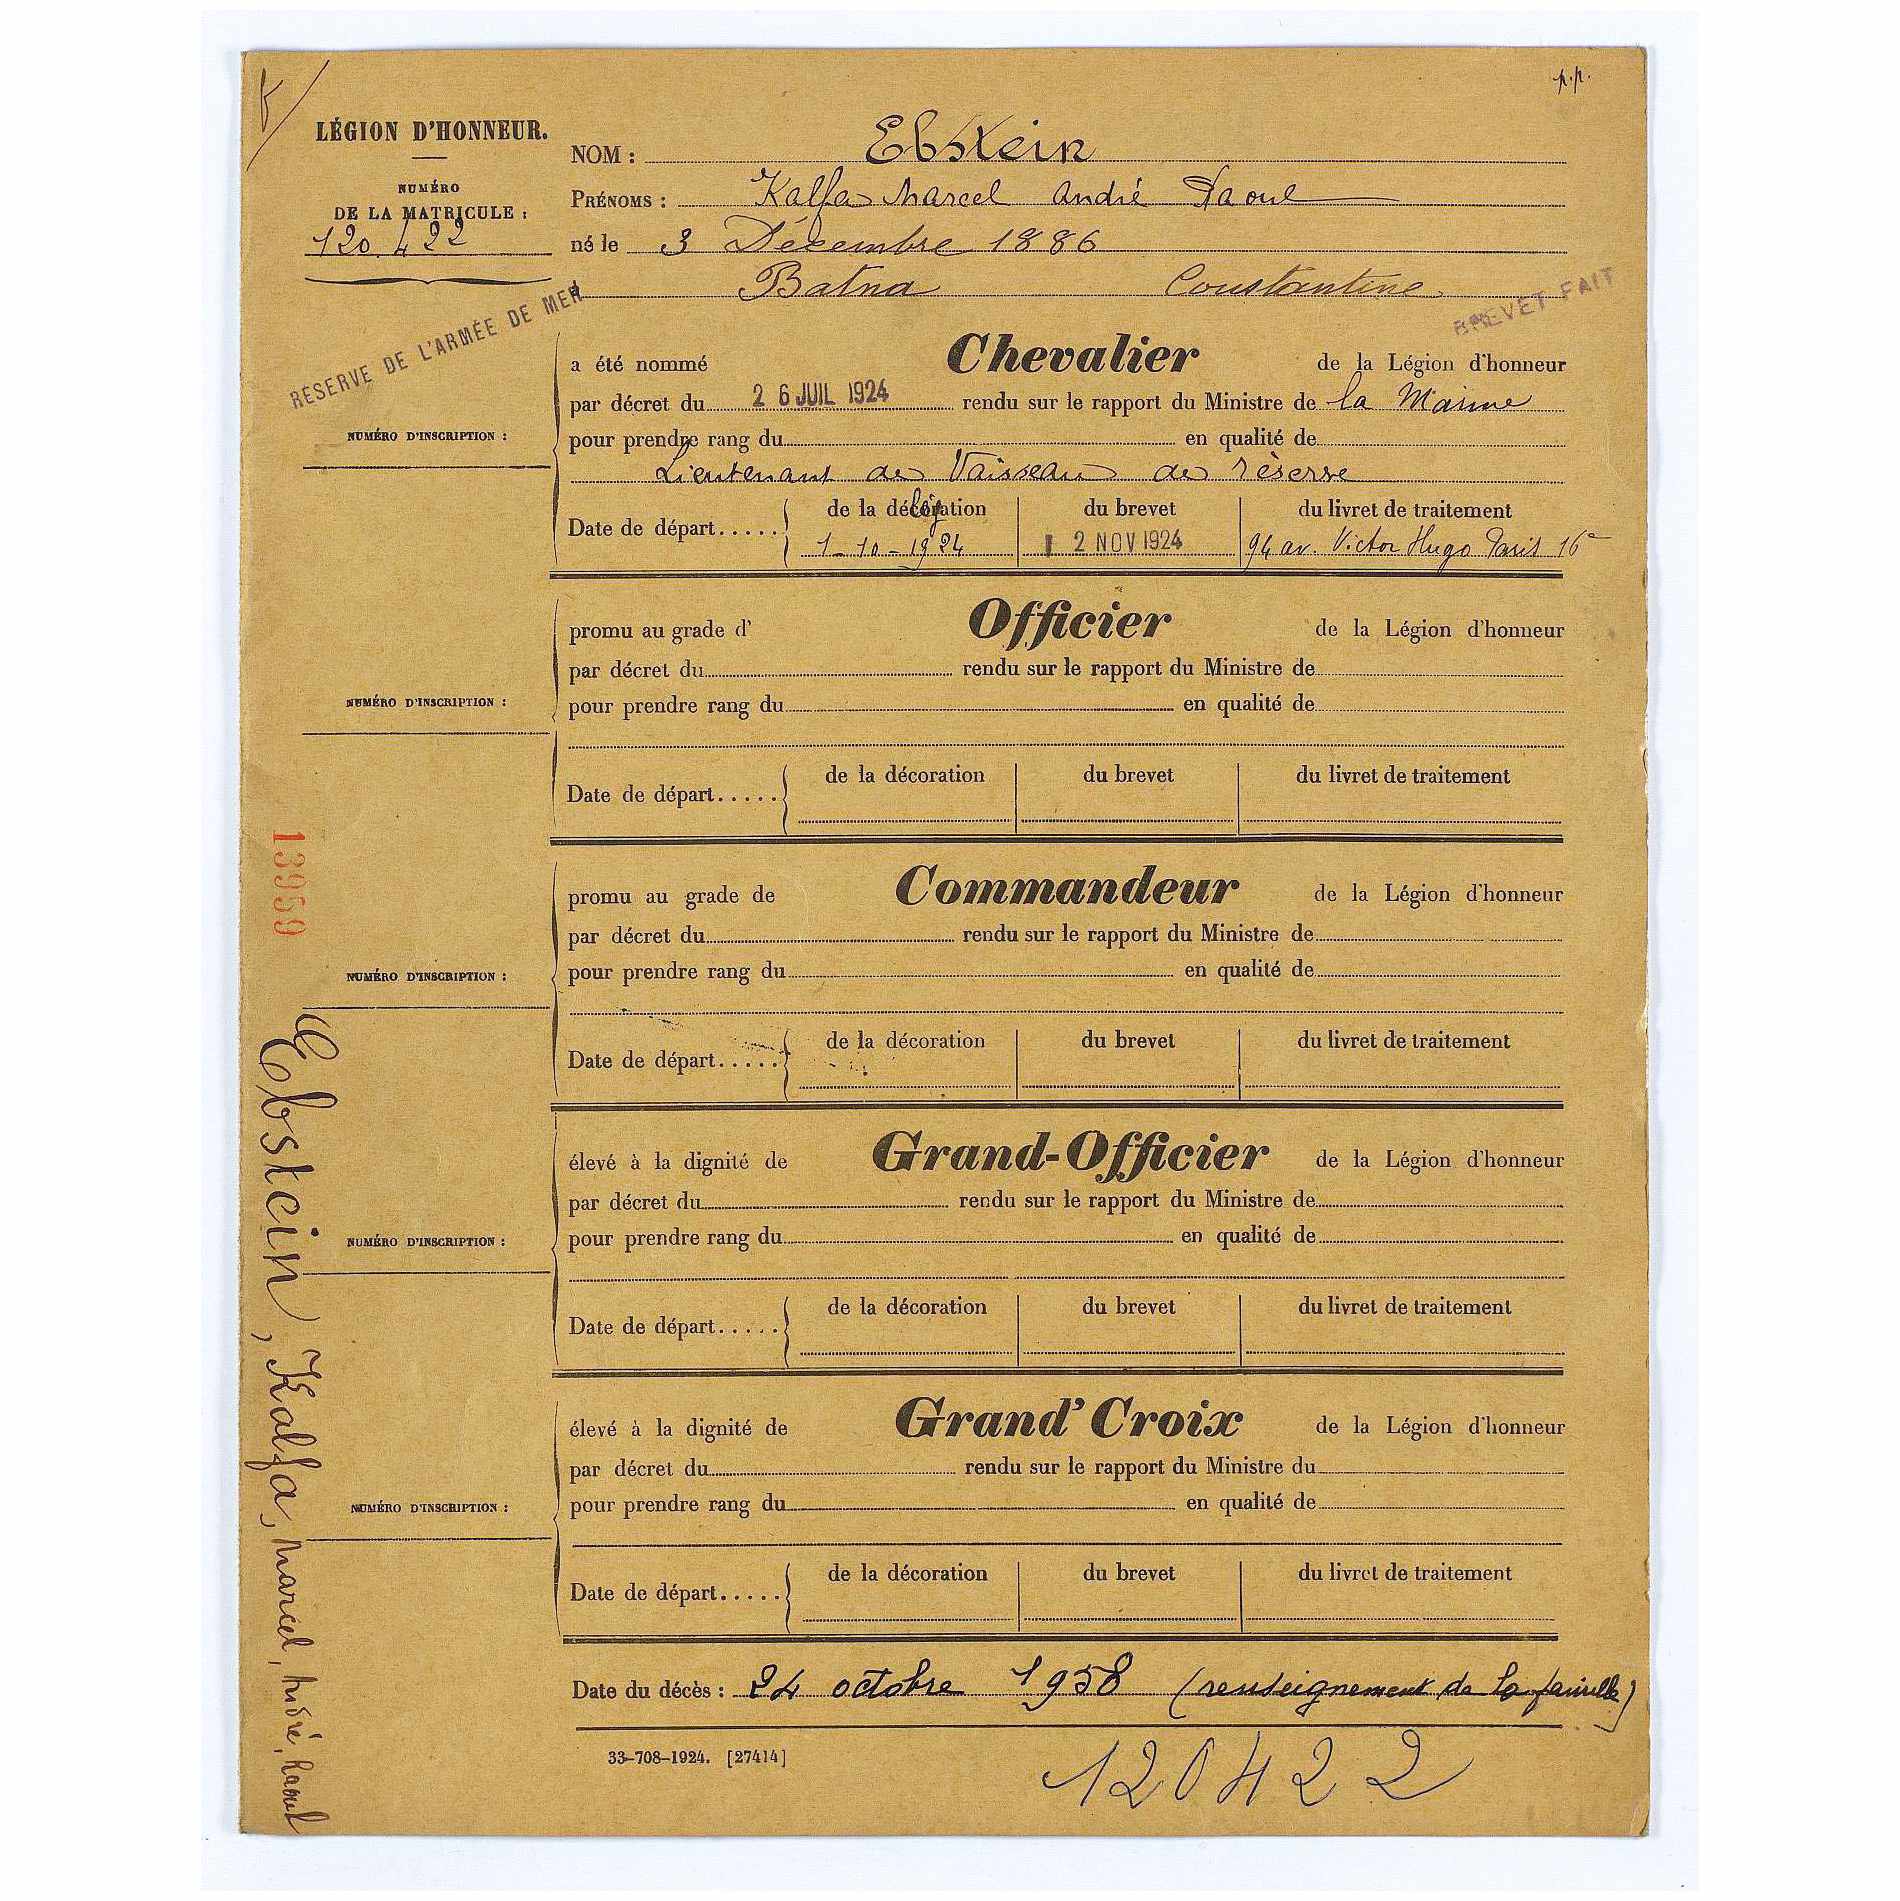 p.p.
LÉGION D'HONNEUR.
NUMÉRO
DE LA MATRICULE :
120.422
NOM : Ebstein
PRÉNOMS : Kalfa Marcel André Raoul
né le 3 Décembre 1886
à Batna Constantine
RÉSERVE DE L'ARMÉE DE MER
BREVET FAIT
a été nommé Chevalier de la Légion d'honneur
par décret du 26 JUIL 1924 rendu sur le rapport du Ministre de la Marine
NUMÉRO D'INSCRIPTION :
pour prendre rang du en qualité de
Lieutenant de Vaisseau de réserve
Date de départ..... de la décoration du brevet du livret de traitement
1-10-1924 12 NOV 1924 94 av. Victor Hugo Paris 16e
promu au grade d' Officier de la Légion d'honneur
par décret du rendu sur le rapport du Ministre de
NUMÉRO D'INSCRIPTION :
pour prendre rang du en qualité de
Date de départ..... de la décoration du brevet du livret de traitement
13959
promu au grade de Commandeur de la Légion d'honneur
par décret du rendu sur le rapport du Ministre de
NUMÉRO D'INSCRIPTION :
pour prendre rang du en qualité de
Date de départ..... de la décoration du brevet du livret de traitement
élevé à la dignité de Grand-Officier de la Légion d'honneur
par décret du rendu sur le rapport du Ministre de
NUMÉRO D'INSCRIPTION :
pour prendre rang du en qualité de
Date de départ..... de la décoration du brevet du livret de traitement
élevé à la dignité de Grand'Croix de la Légion d'honneur
par décret du rendu sur le rapport du Ministre du
NUMÉRO D'INSCRIPTION :
pour prendre rang du en qualité de
Date de départ..... de la décoration du brevet du livret de traitement
Ebstein, Kalfa, Marcel, André, Raoul
Date du décès : 24 octobre 1958 (renseignement de la famille)
33-708-1924. [27414]
120422